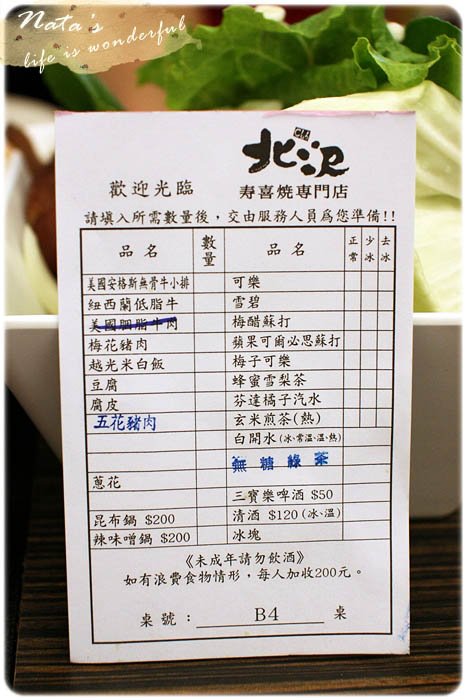 Nata's
life is wonderful
北沢
歡迎光臨 寿喜燒專門店
請填入所需數量後，交由服務人員為您準備!!
品名 數量 品名 正常 少冰 去冰
美國安格斯無骨牛小排 可樂
紐西蘭低脂牛 雪碧
美國胭脂牛肉 梅醋蘇打
梅花豬肉 蘋果可爾必思蘇打
越光米白飯 梅子可樂
豆腐 蜂蜜雪梨茶
腐皮 芬達橘子汽水
五花豬肉 玄米煎茶(熱)
白開水(冰、常溫、溫、熱)
無糖綠茶
蔥花
三寶樂啤酒 $50
昆布鍋 $200 清酒 $120(冰、溫)
辣味噌鍋 $200 冰塊
《未成年請勿飲酒》
如有浪費食物情形，每人加收200元。
桌號： B4 桌